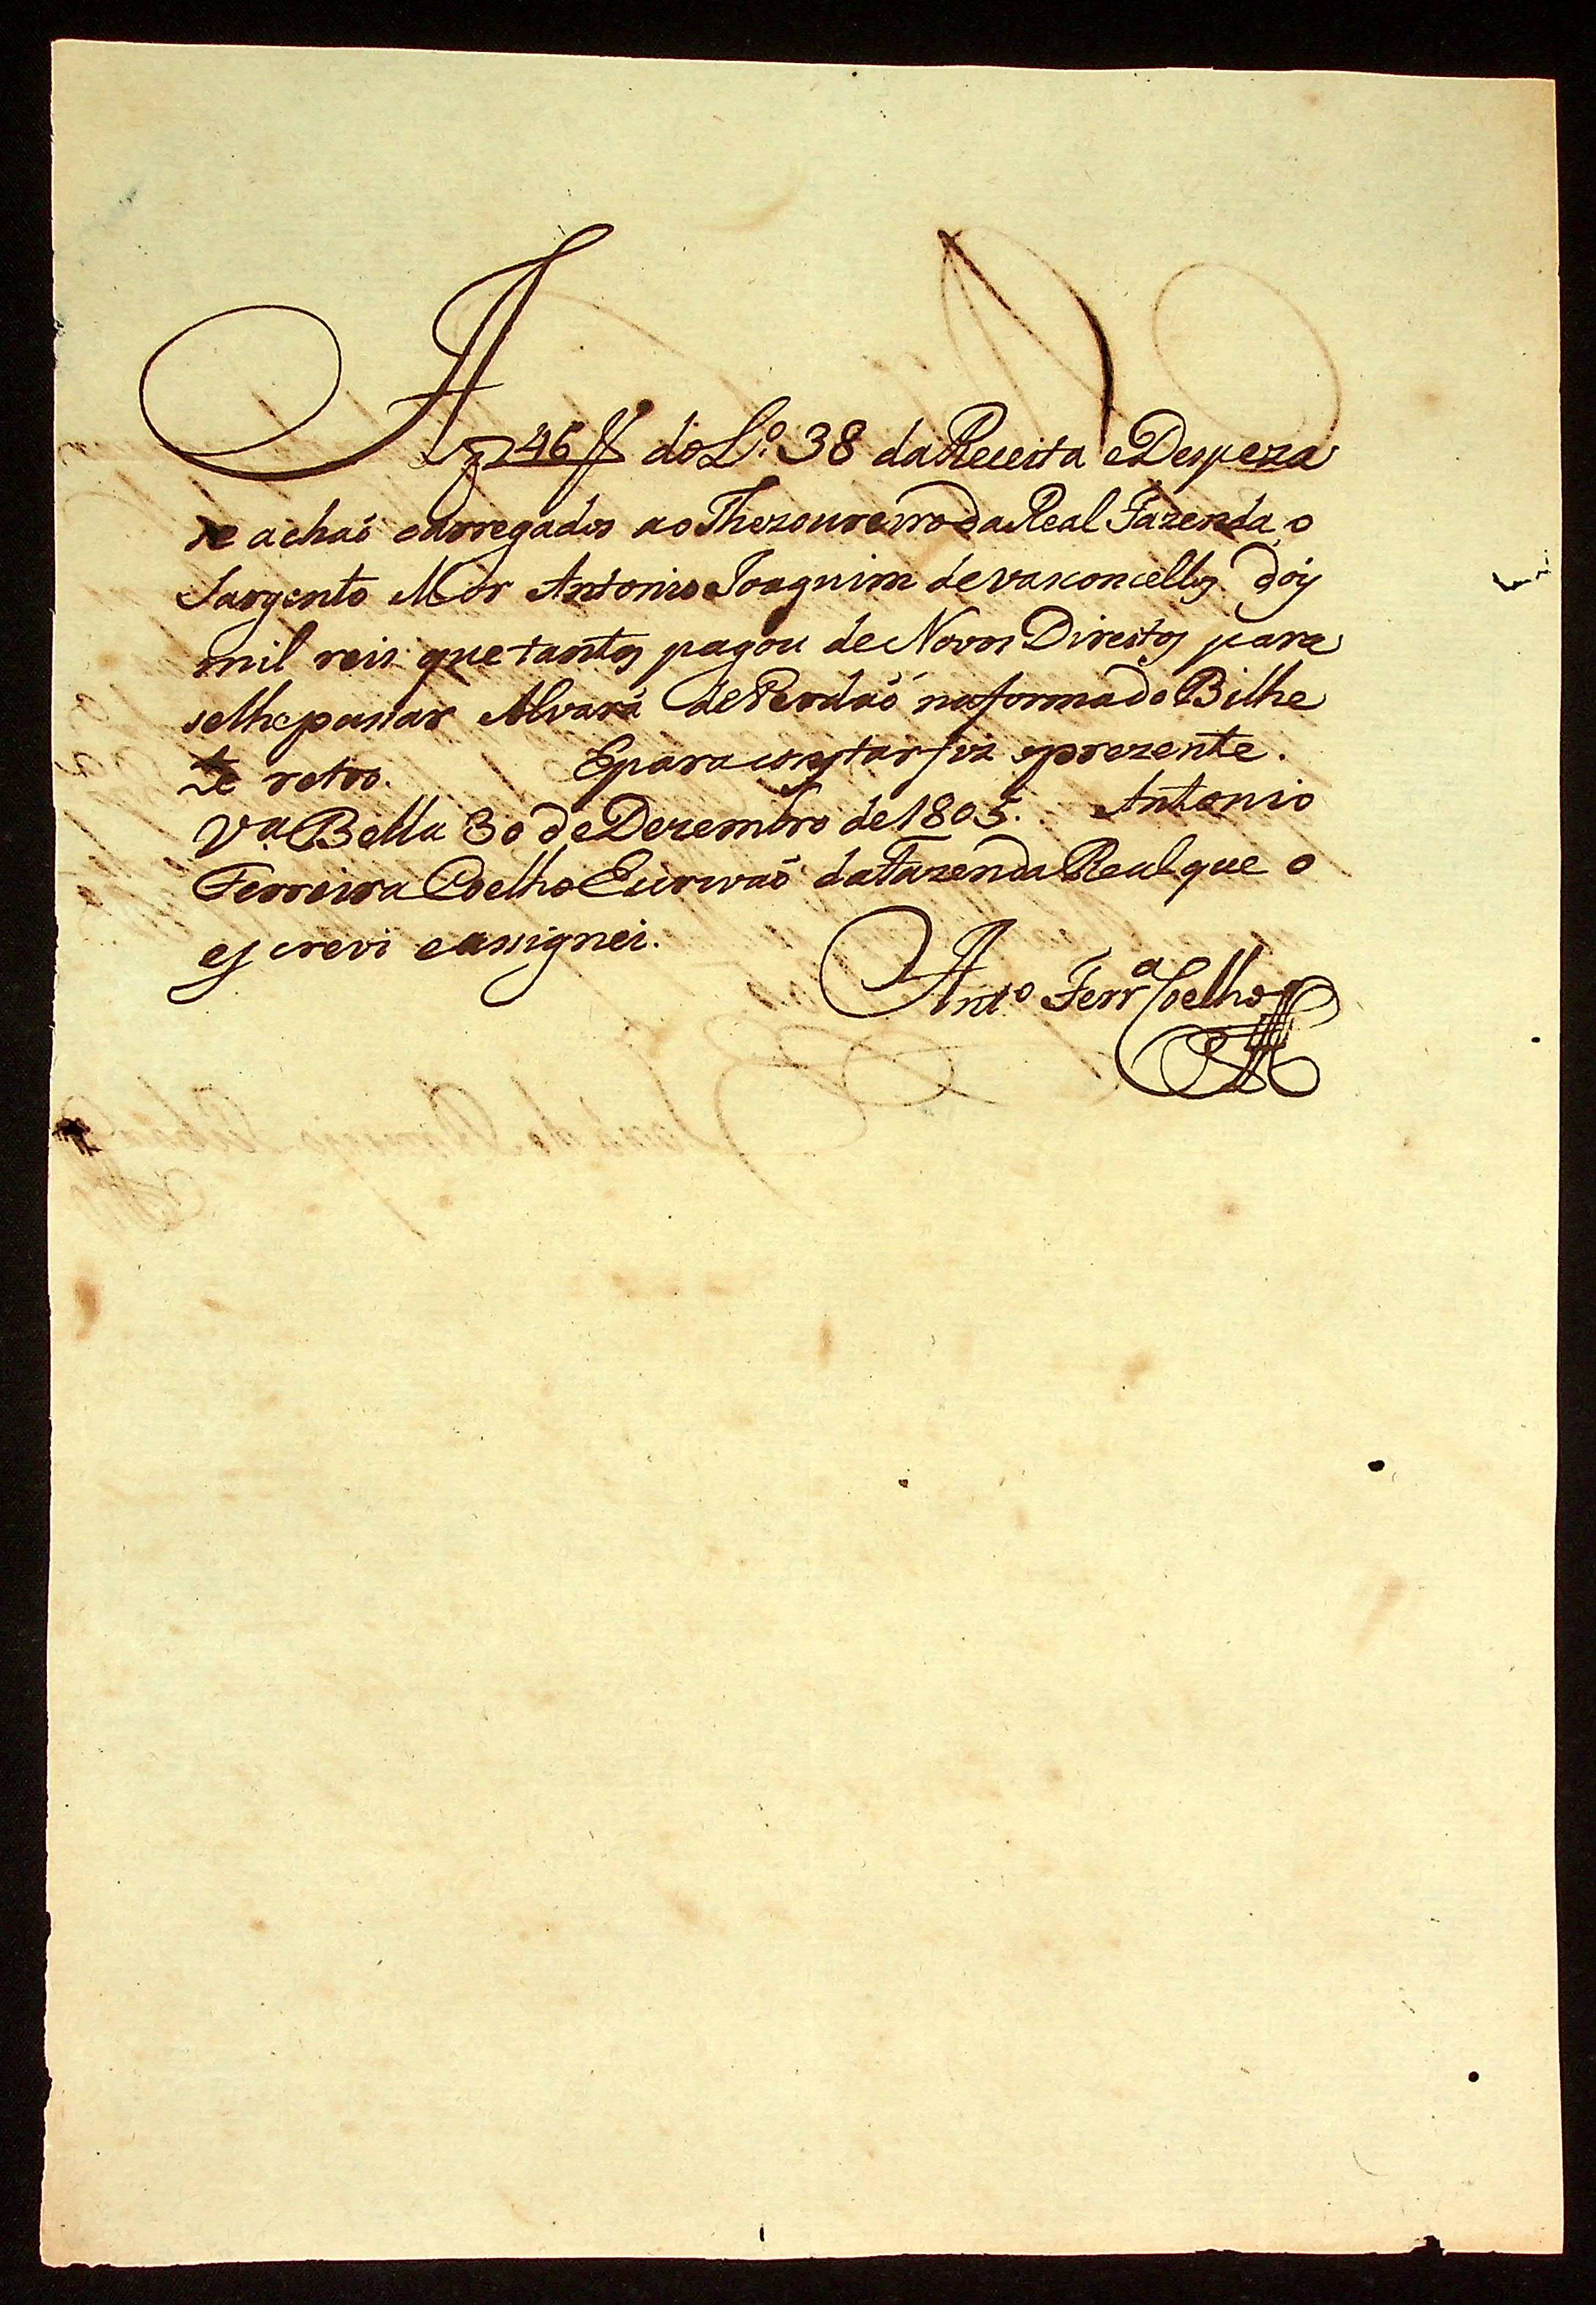 A f 46 V do L.º 38 da Receita e Despeza
se achaõ carregados ao Thezoureiro da Real Fazenda o
Sargento Mór Antonio Joaquim de Vasconcellos dois
mil reis que tantos pagou de Novos Direitos para
se lhe passar Alvará de Perdaõ na forma do Bilhe
te retro. E para constar fiz o prezente.
V.ª Bella 30 de Dezembro de 1805. Antonio
Ferreira Coelho Escrivaõ da Fazenda Real que o
escrevi e assignei.
Antº Ferrª Coelho